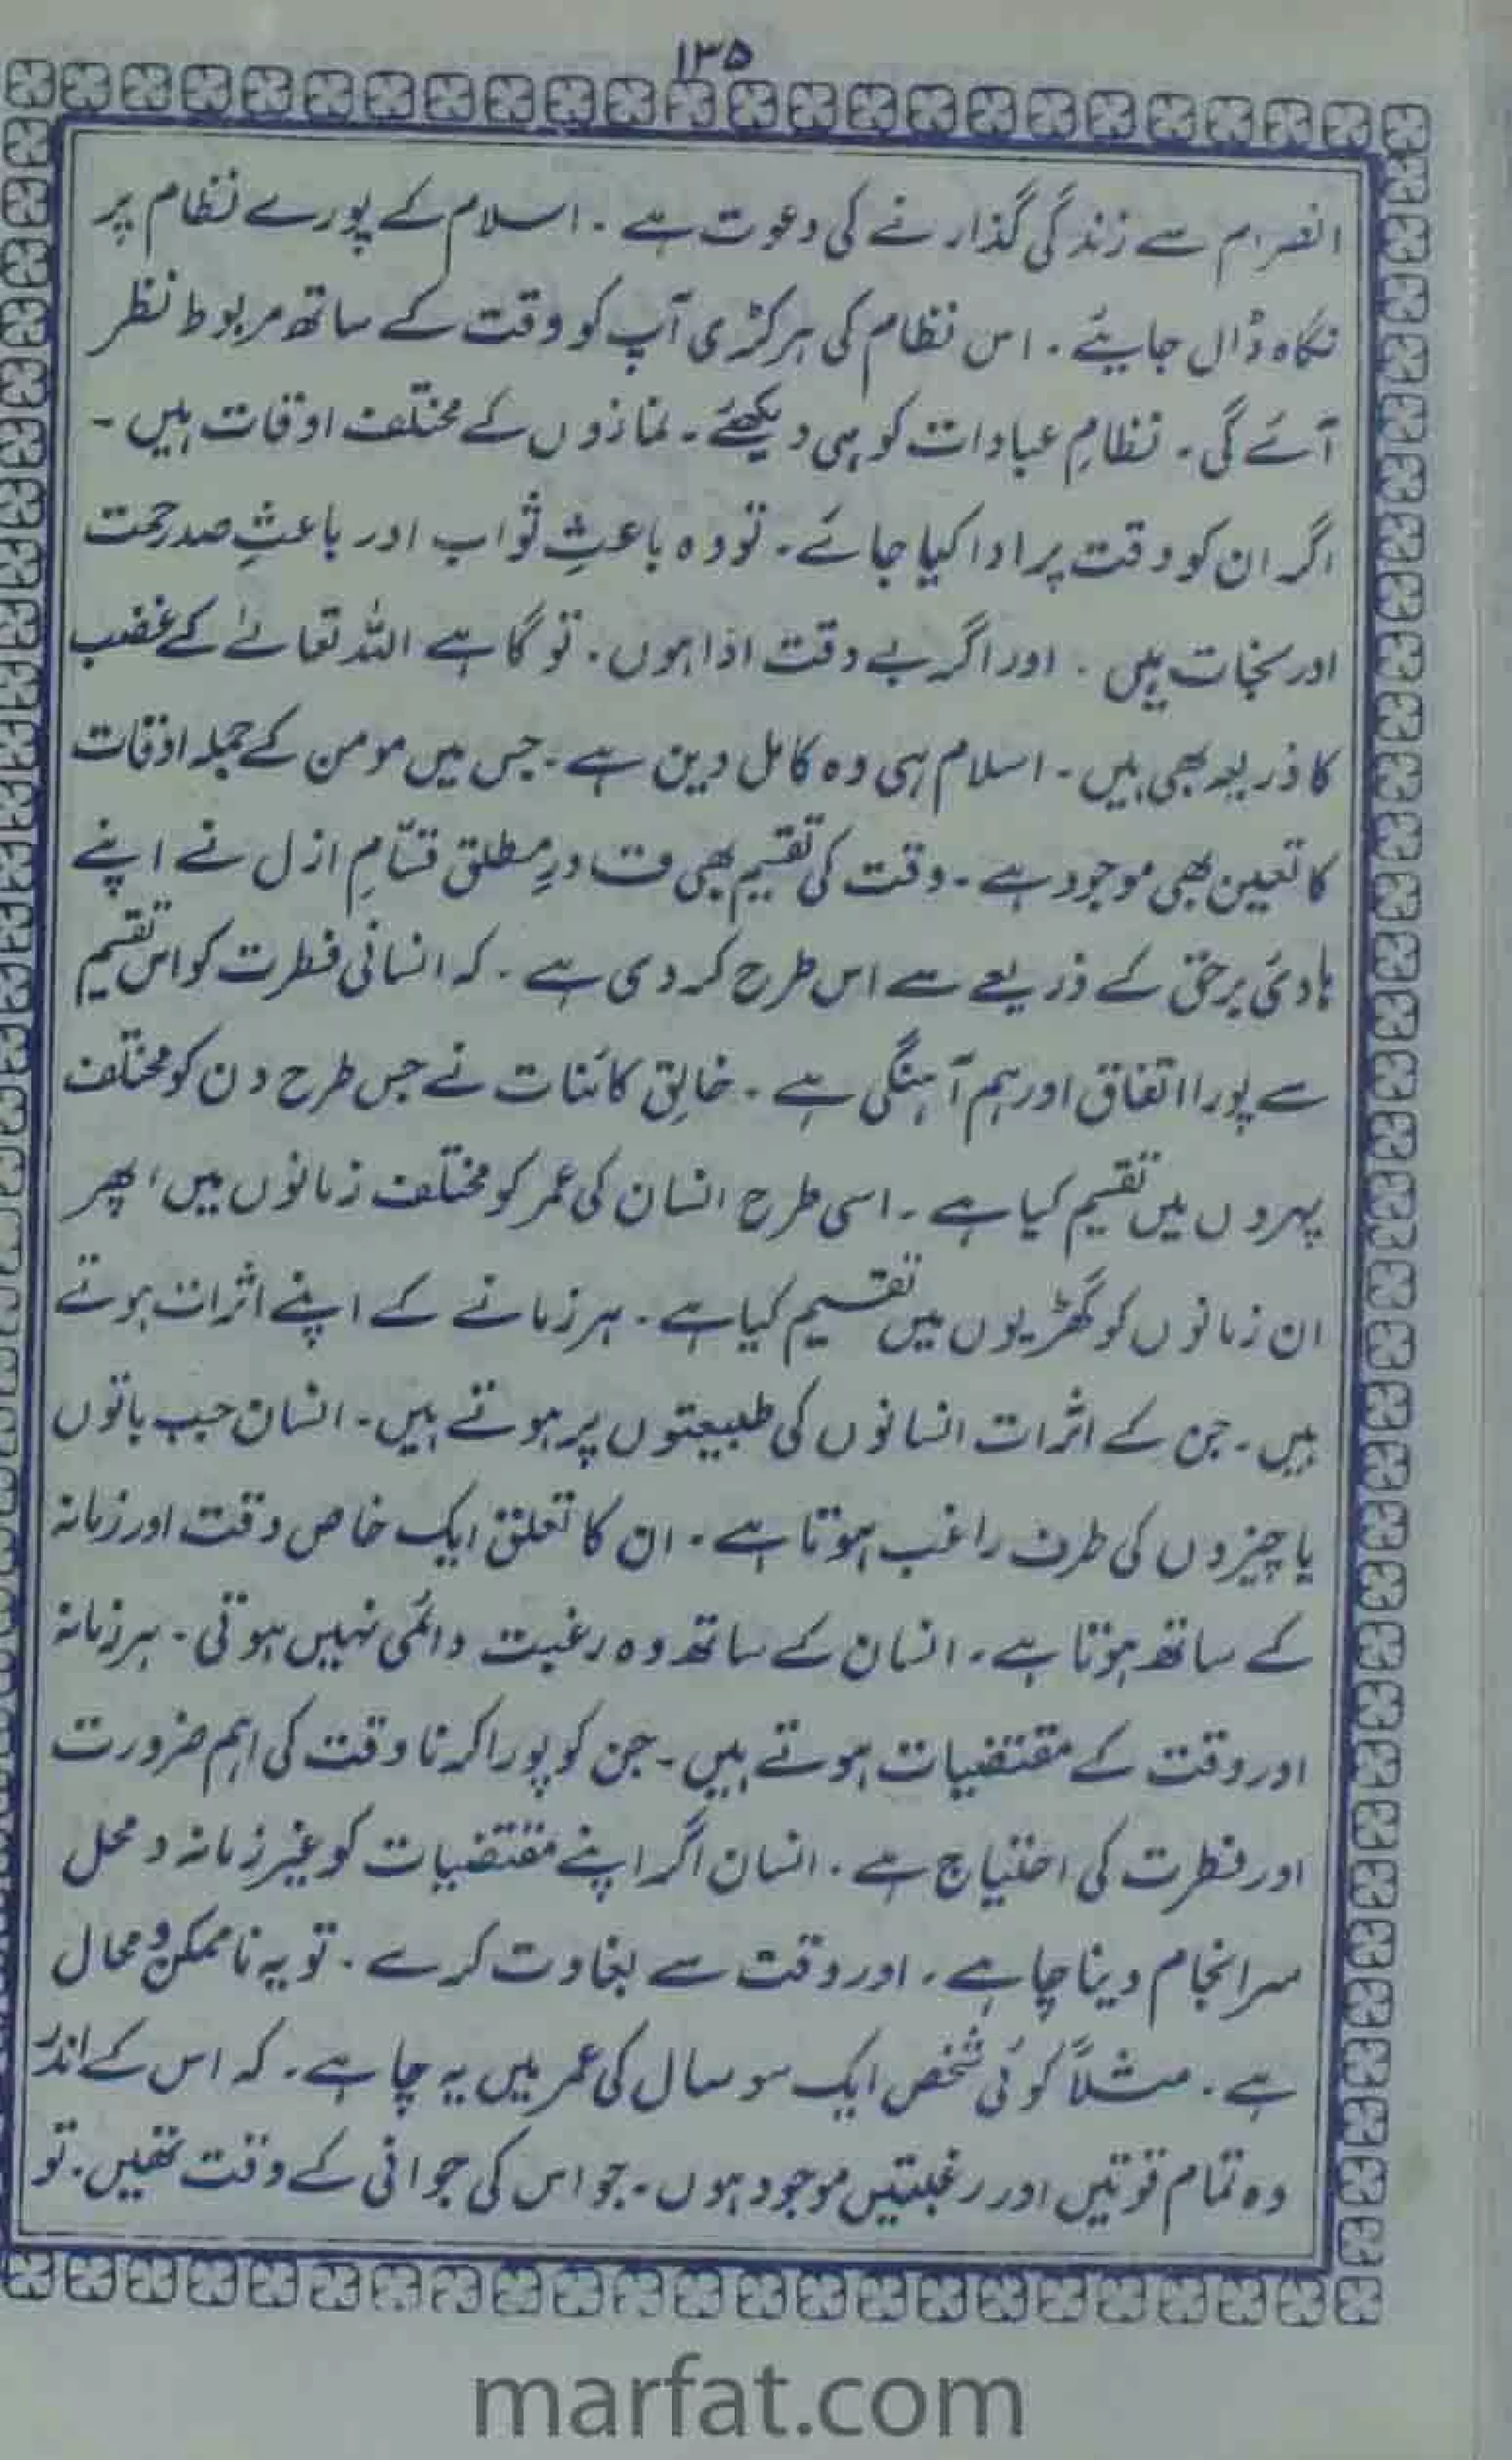 ۱۳۵
انصرام سے زندگی گذارنے کی دعوت ہے ۔ اسلام کے پورے نظام پر
نگاہ ڈال جایئے ۔ اس نظام کی ہر کڑی آپ کو وقت کے ساتھ مربوط نظر
آئے گی ۔ نظامِ عبادات کو ہی دیکھئے ۔ نمازوں کے مختلف اوقات ہیں ۔
اگر ان کو وقت پر ادا کیا جائے ۔ تو وہ باعثِ ثواب اور باعثِ صد رحمت
اور نجات ہیں ۔ اور اگر بے وقت ادا ہوں ۔ تو گاہے اللہ تعالےٰ کے غضب
کا ذریعہ بھی ہیں ۔ اسلام ہی وہ کامل دین ہے ۔ جس میں مومن کے جملہ اوقات
کا تعین بھی موجود ہے ۔ وقت کی تقسیم بھی قادرِ مطلق قسّامِ ازل نے اپنے
ہادئ برحق کے ذریعے سے اس طرح کر دی ہے ۔ کہ انسانی فطرت کو اس تقسیم
سے پورا اتفاق اور ہم آہنگی ہے ۔ خالقِ کائنات نے جس طرح دن کو مختلف
پہروں میں تقسیم کیا ہے ۔ اسی طرح انسان کی عمر کو مختلف زمانوں میں ، پھر
ان زمانوں کو گھڑیوں میں تقسیم کیا ہے ۔ ہر زمانے کے اپنے اثرات ہوتے
ہیں ۔ جن کے اثرات انسانوں کی طبیعتوں پر ہوتے ہیں ۔ انسان جب باتوں
یا چیزوں کی طرف راغب ہوتا ہے ۔ ان کا تعلق ایک خاص وقت اور زمانہ
کے ساتھ ہوتا ہے ۔ انسان کے ساتھ وہ رغبت دائمی نہیں ہوتی ۔ ہر زمانہ
اور وقت کے مقتضیات ہوتے ہیں ۔ جن کو پورا کرنا وقت کی اہم ضرورت
اور فطرت کی احتیاج ہے ۔ انسان اگر اپنے مقتضیات کو غیر زمانہ و محل
سرانجام دینا چاہے ۔ اور وقت سے بغاوت کرے ۔ تو یہ ناممکن و محال
ہے ۔ مثلاً کوئی شخص ایک سو سال کی عمر میں یہ چاہے ۔ کہ اس کے اندر
وہ تمام قوتیں اور رغبتیں موجود ہوں ۔ جو اس کی جوانی کے وقت تھیں ۔ تو
marfat.com